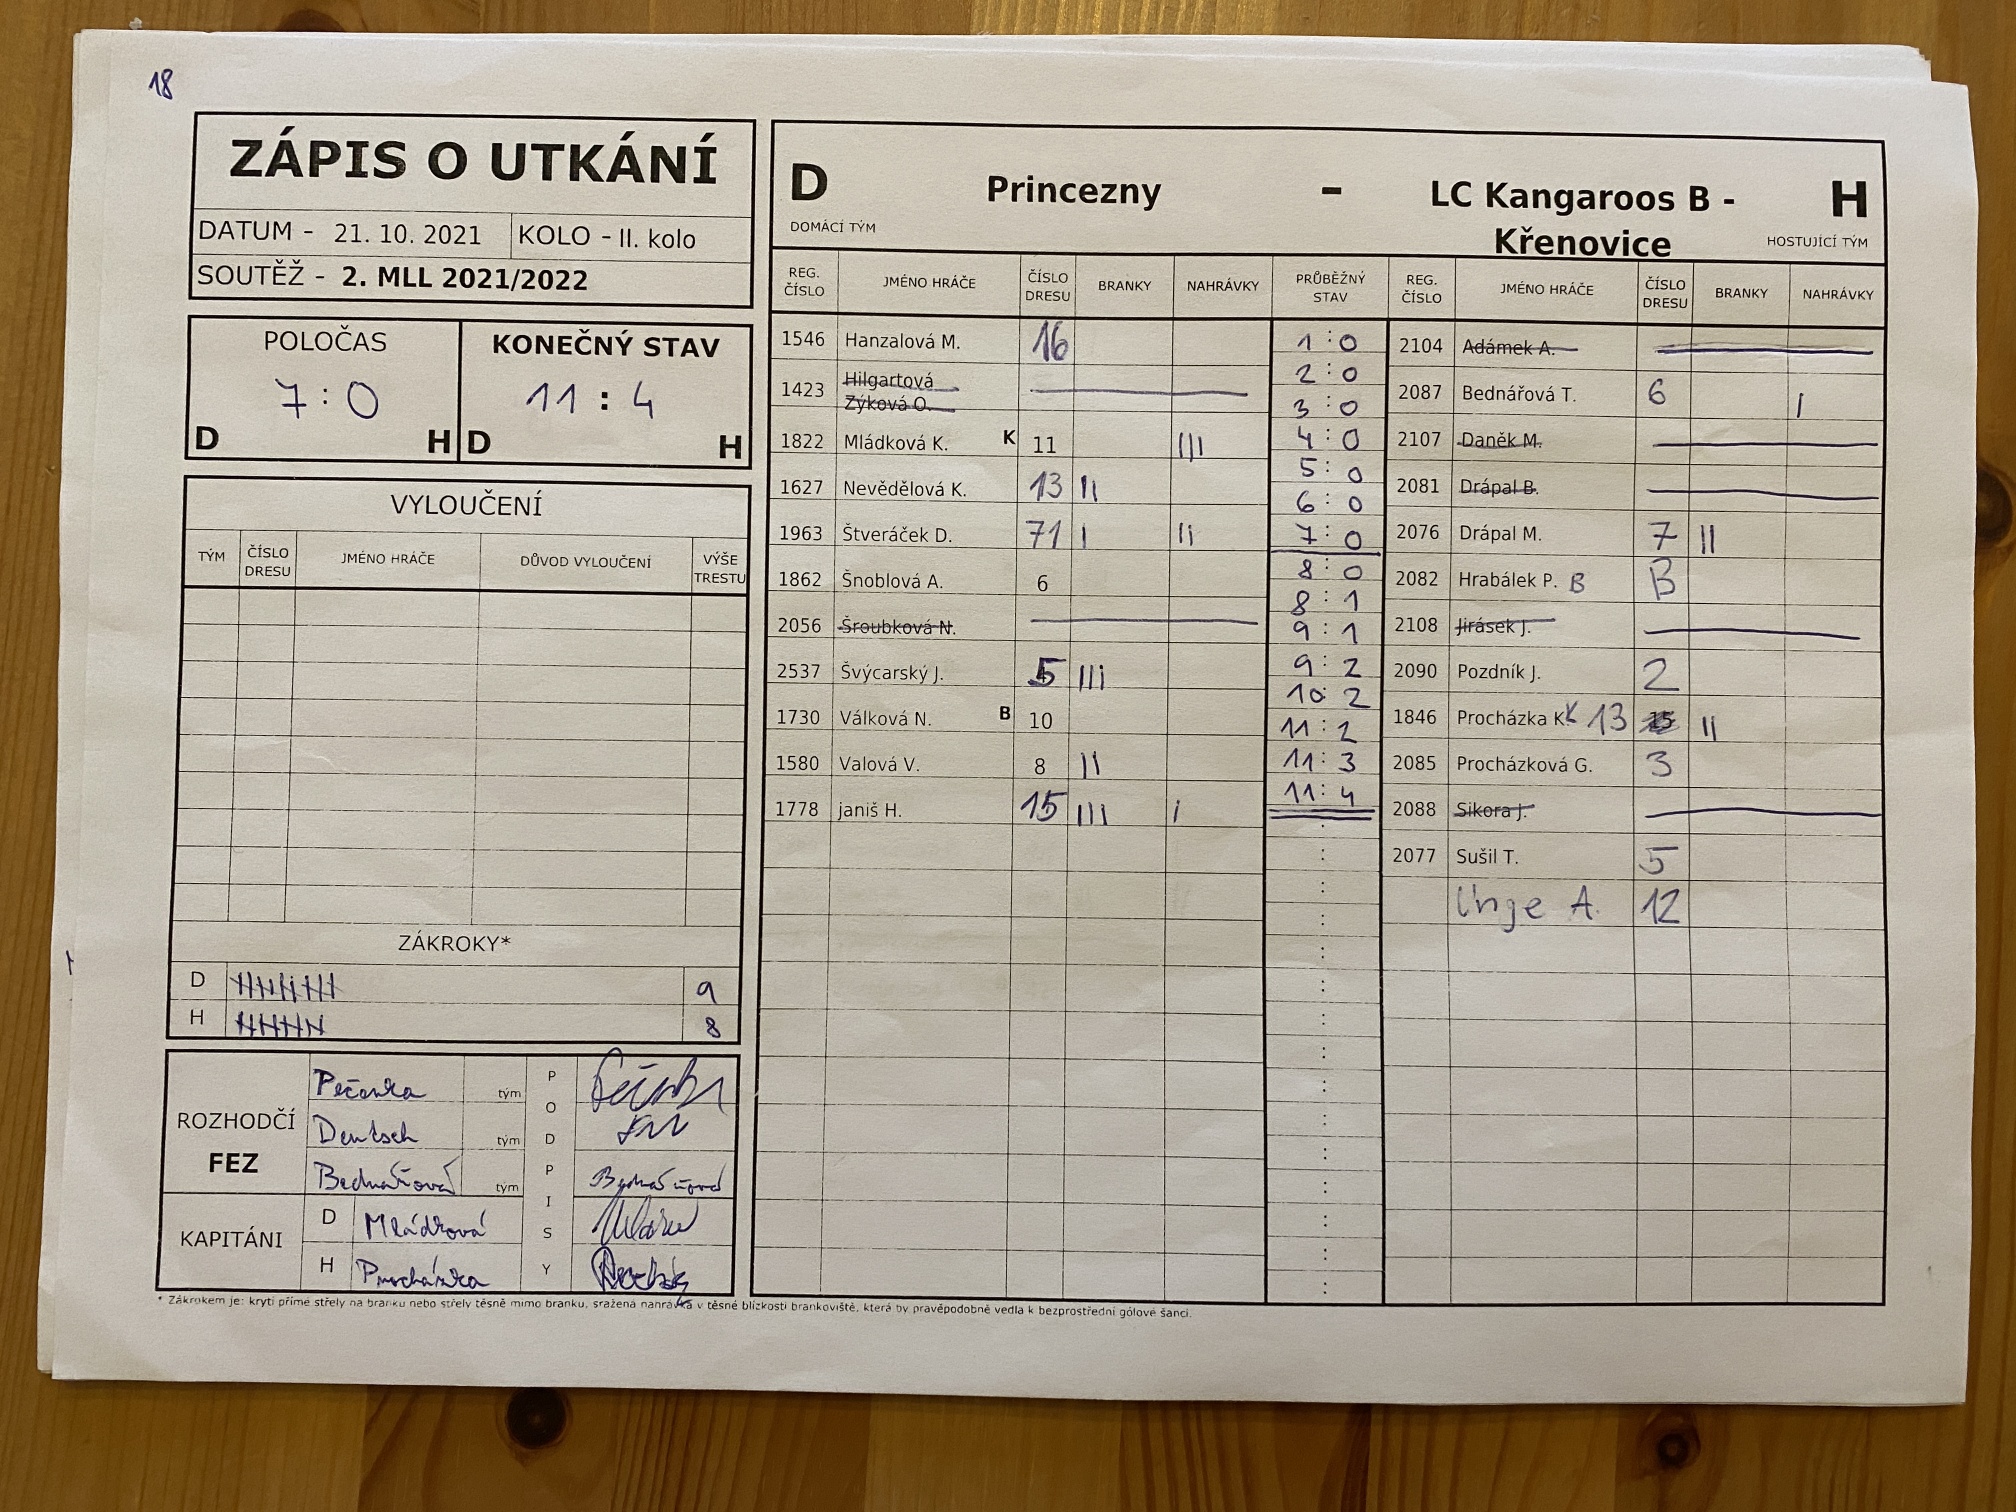 18
ZÁPIS O UTKÁNÍ
DATUM - 21. 10. 2021 KOLO - II. kolo
SOUTĚŽ - 2. MLL 2021/2022
POLOČAS
7 : 0
D H
KONEČNÝ STAV
11 : 4
D H
VYLOUČENÍ
TÝM ČÍSLO DRESU JMÉNO HRÁČE DŮVOD VYLOUČENÍ VÝŠE TRESTU
ZÁKROKY*
D 9
H 8
ROZHODČÍ
FEZ
Pečonka tým
Deutsch tým
Bednářová tým
KAPITÁNI
D Mládková
H Procházka
PODPISY
Bednářová
D Princezny - LC Kangaroos B - Křenovice H
DOMÁCÍ TÝM HOSTUJÍCÍ TÝM
REG. ČÍSLO JMÉNO HRÁČE ČÍSLO DRESU BRANKY NAHRÁVKY
1546 Hanzalová M. 16
1423 Hilgartová Zýková O.
1822 Mládková K. K 11 |||
1627 Nevědělová K. 13 ||
1963 Štveráček D. 71 | ||
1862 Šnoblová A. 6
2056 Šroubková N.
2537 Švýcarský J. 5 |||
1730 Válková N. B 10
1580 Valová V. 8 ||
1778 janiš H. 15 ||| |
PRŮBĚŽNÝ STAV
1 : 0
2 : 0
3 : 0
4 : 0
5 : 0
6 : 0
7 : 0
8 : 0
8 : 1
9 : 1
9 : 2
10 : 2
11 : 2
11 : 3
11 : 4
REG. ČÍSLO JMÉNO HRÁČE ČÍSLO DRESU BRANKY NAHRÁVKY
2104 Adámek A.
2087 Bednářová T. 6 |
2107 Daněk M.
2081 Drápal B.
2076 Drápal M. 7 ||
2082 Hrabálek P. B B
2108 Jirásek J.
2090 Pozdník J. 2
1846 Procházka K. K 13 ||
2085 Procházková G. 3
2088 Sikora J.
2077 Sušil T. 5
Unge A. 12
* Zákrokem je: krytí přímé střely na branku nebo střely těsně mimo branku, sražená nahrávka v těsné blízkosti brankoviště, která by pravěpodobně vedla k bezprostřední gólové šanci.